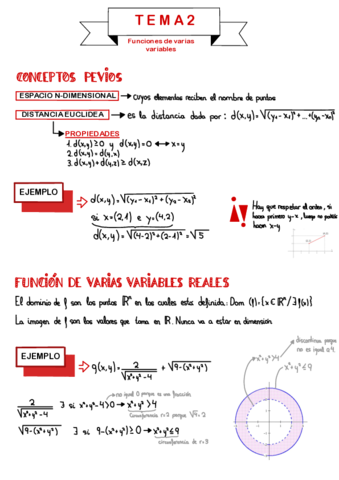 TEMA2
Funciones de varias
variables
CONCEPTOS PEVIOS
ESPACIO N-DIMENSIONAL → cuyos elementos reciben el nombre de puntos
DISTANCIA EUCLIDEA → es la distancia dada por: d(x,y)=√(y₁-x₁)²+...+(yₙ-xₙ)²
PROPIEDADES
1. d(x,y)≥0 y d(x,y)=0 ↔ x=y
2. d(x,y)=d(y,x)
3. d(x,y)+d(y,z) ≥ d(x,z)
EJEMPLO
d(x,y)=√(y₁-x₁)²+(y₂-x₂)²
si x=(2,1) e y=(4,2)
d(x,y)=√(4-2)²+(2-1)²=√5
Hay que respetar el orden, si
hago primero y-x, luego no puedo
hacer x-y
FUNCIÓN DE VARIAS VARIABLES REALES
El dominio de f son los puntos ℝⁿ en los cuales esta definida: Dom (f)={x∈ℝⁿ/∃f(x)}
La imagen de f son los valores que toma en ℝ. Nunca va a estar en dimensión
EJEMPLO
g(x,y)= 2/√x²+y²-4 + √9-(x²+y²)
discontinua porque
no es igual a 4
x²+y²>4
x²+y²≤9
no igual 0 porque es una fracción
2/√x²+y²-4 ∃ si x²+y²-4>0 → x²+y²>4
Circunferencia r=2 porque √4=2
√9-(x²+y²) ∃ si 9-(x²+y²)≥0 → x²+y²≤9
circunferencia de r=3